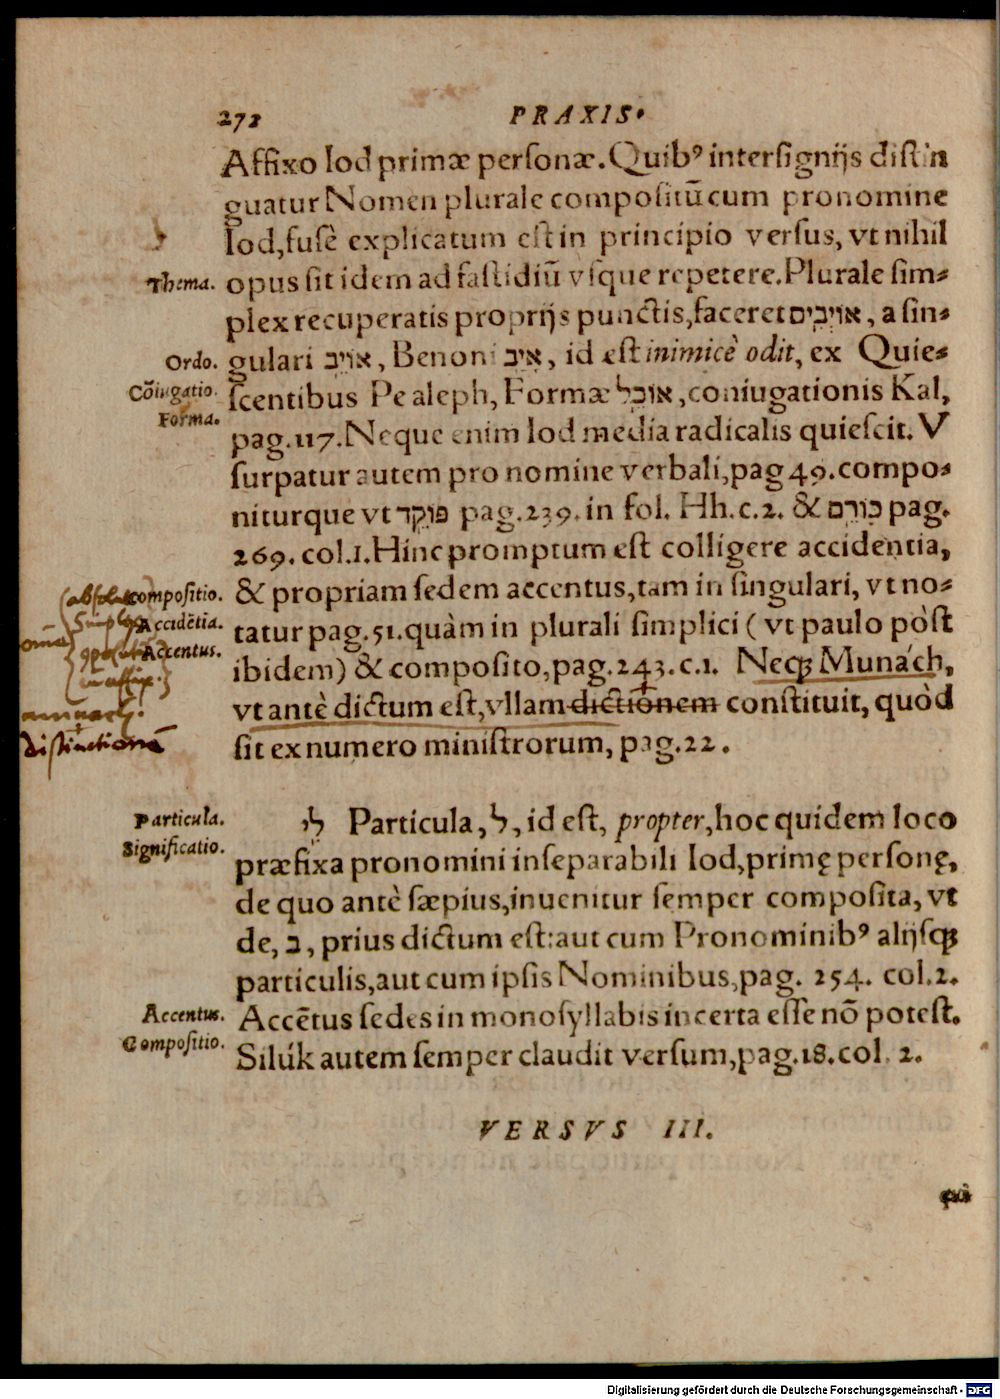 272 PRAXIS.
Affixo Iod primæ personæ. Quibꝰ intersignijs distin
guatur Nomen plurale compositũ cum pronomine
Iod, fusè explicatum est in principio versus, vt nihil
Thema. opus sit idem ad fastidiũ vsque repetere. Plurale sim-
plex recuperatis proprijs punctis, faceret אוֹיְבִים, a sin-
Ordo. gulari אוֹיֵב, Benoni אָיַב, id est inimicè odit, ex Quie-
Cõiugatio. scentibus Pe aleph, Formæ אוֹכֵל, coniugationis Kal,
Forma. pag. 117. Neque enim Iod media radicalis quiescit. V
surpatur autem pro nomine verbali, pag 49. compo-
niturque vt פּוֹקֵד pag. 239. in fol. Hh. c. 2. & כּוֹרֵם pag.
269. col. 1. Hinc promptum est colligere accidentia,
compositio. & propriam sedem accentus, tam in singulari, vt no-
Accidẽtia. tatur pag. 51. quàm in plurali simplici ( vt paulo pòst
Accentus. ibidem) & composito, pag. 243. c. 1. Neqꝫ Munach,
vt antè dictum est, vllam dictionem constituit, quòd
distinctionẽ
sit ex numero ministrorum, pag. 22.
Particula. לִי Particula, לְ, id est, propter, hoc quidem loco
Significatio. præfixa pronomini inseparabili Iod, primę personę,
de quo antè sæpius, inuenitur semper composita, vt
de, ב, prius dictum est: aut cum Pronominibꝰ alijsqꝫ
particulis, aut cum ipsis Nominibus, pag. 254. col. 2.
Accentus. Accẽtus sedes in monosyllabis incerta esse nõ potest.
Compositio. Silúk autem semper claudit versum, pag. 18. col. 2.
VERSVS III.
Digitalisierung gefördert durch die Deutsche Forschungsgemeinschaft - DFG